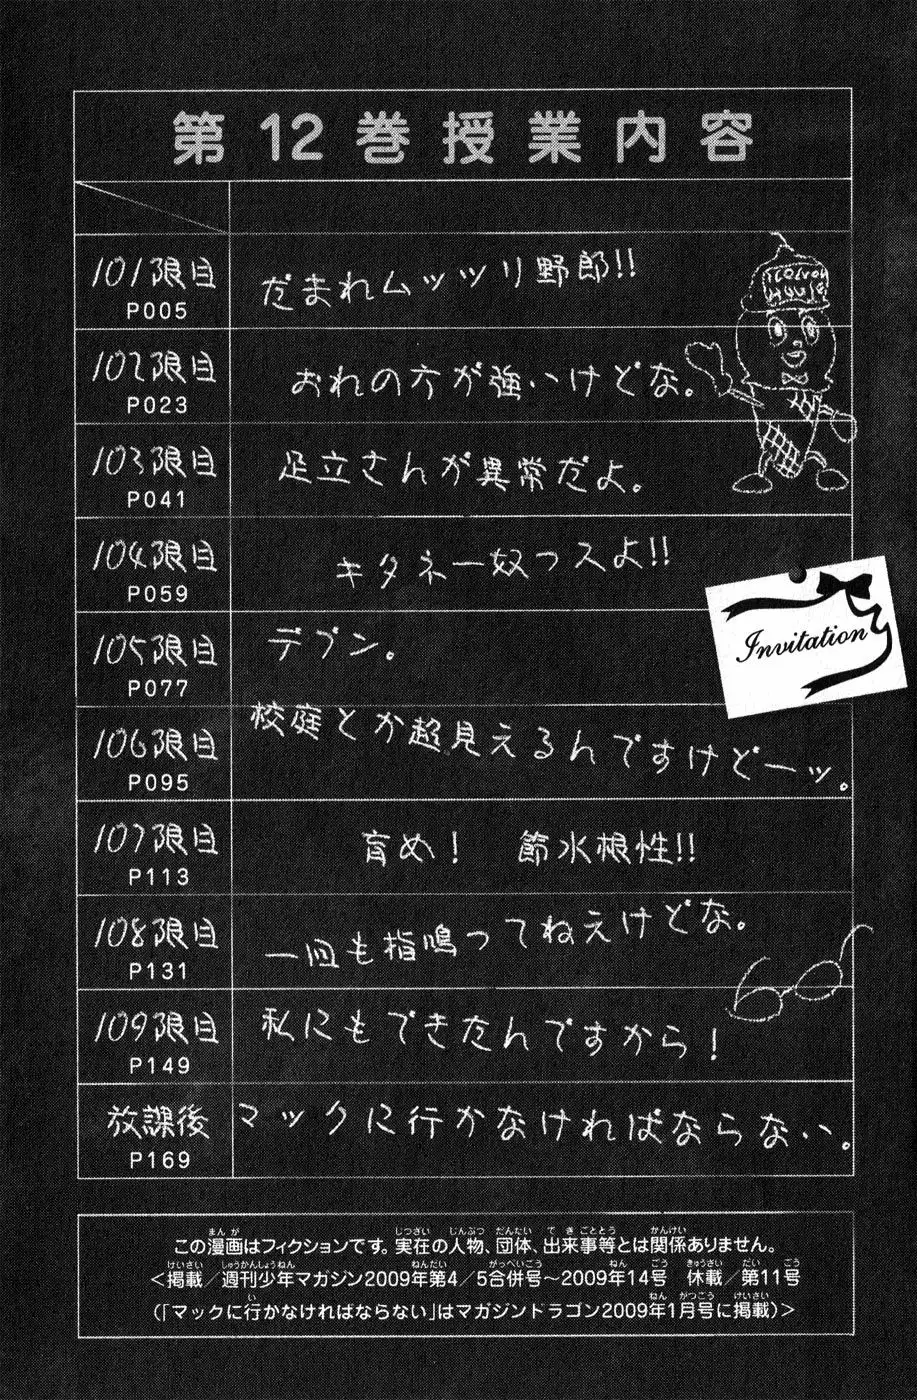 第12巻授業内容
101限目 だまれムッツリ野郎!!
P005
102限目 おれの方が強いけどな。
P023
103限目 足立さんが異常だよ。
P041
104限目 キタネー奴っスよ!!
P059
Invitation
105限目 デブン。
P077
106限目 校庭とか超見えるんですけどーッ。
P095
107限目 育め! 節水根性!!
P113
108限目 一回も指鳴ってねえけどな。
P131
109限目 私にもできたんですから!
P149
放課後 マックに行かなければならない。
P169
この漫画はフィクションです。実在の人物、団体、出来事等とは関係ありません。
<掲載/週刊少年マガジン2009年第4/5合併号~2009年14号 休載/第11号
(「マックに行かなければならない」はマガジンドラゴン2009年1月号に掲載)>